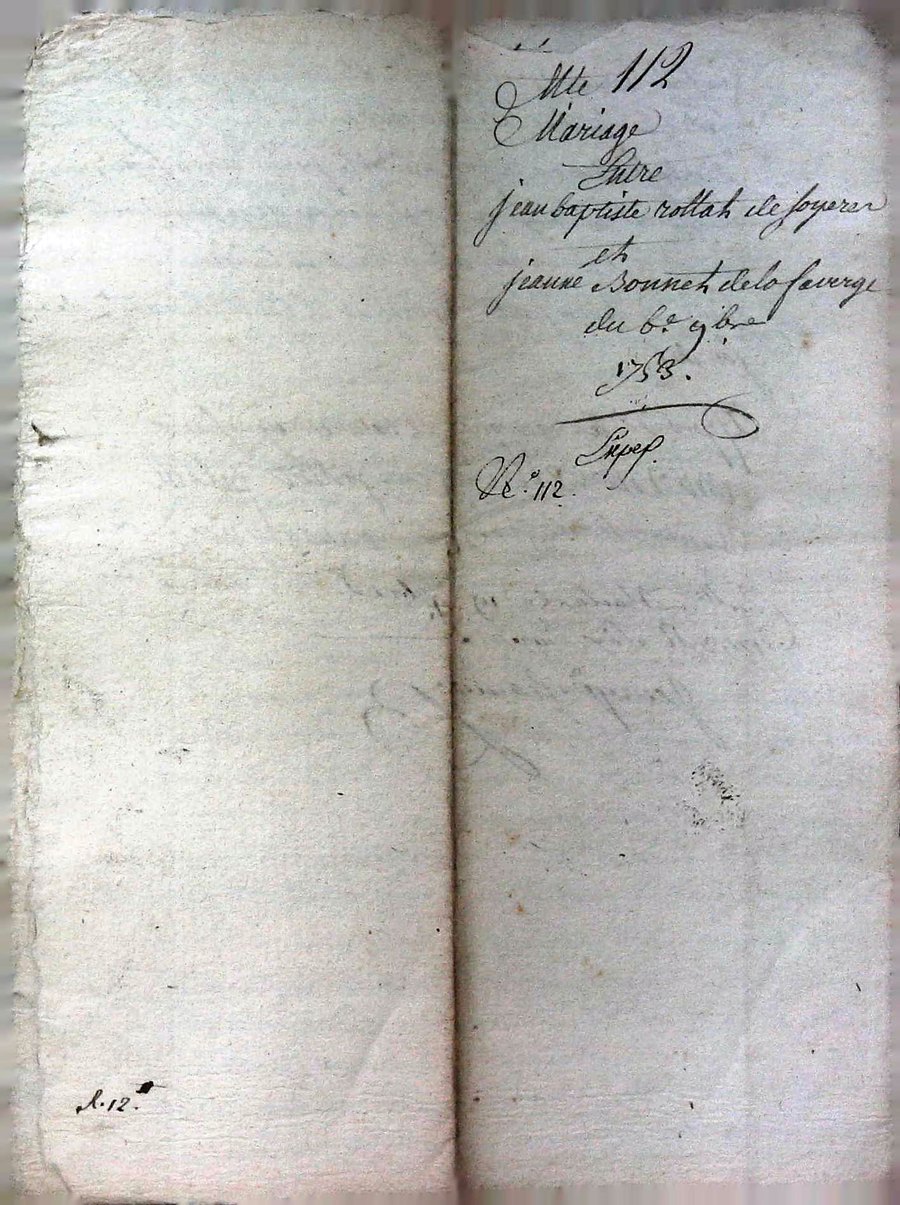 Cotte 112
Mariage
Entre
jean baptiste rottah de soyerer
et
jeanne Bonneth de la faverge
du 6.e 9bre
1753.
Exped.
N.o 112.
l.12.s